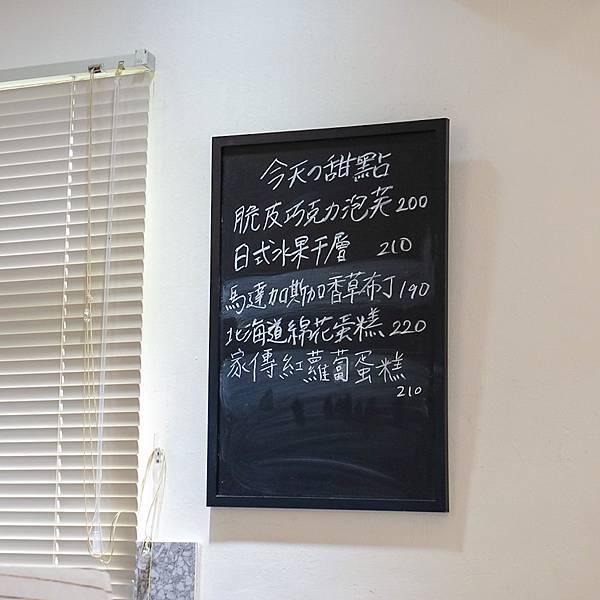 今天の甜點
脆皮巧克力泡芙200
日式水果千層 210
馬達加斯加香草布丁190
北海道綿花蛋糕220
家傳紅蘿蔔蛋糕
210